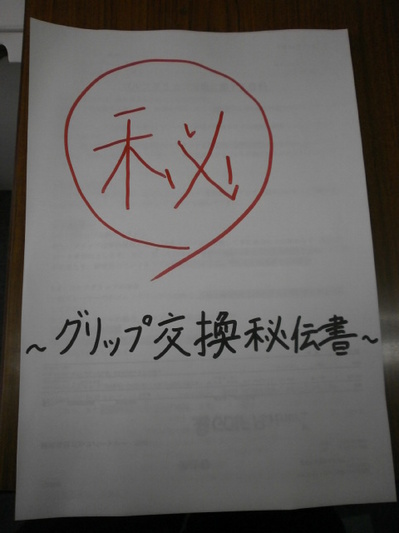 秘
~グリップ交換秘伝書~